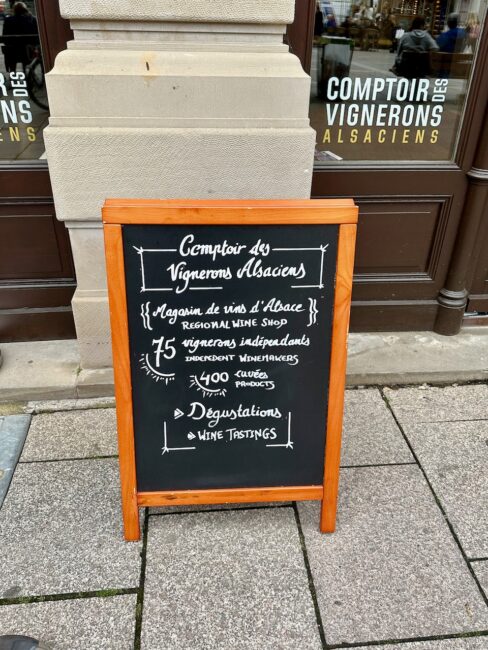 R
NS
ENS
COMPTOIR DES
VIGNERONS
ALSACIENS
Comptoir des
Vignerons Alsaciens
Magasin de vins d'Alsace
REGIONAL WINE SHOP
75 vignerons indépendants
INDEPENDENT WINEMAKERS
400 cuvées
PRODUCTS
Dégustations
WINE TASTINGS